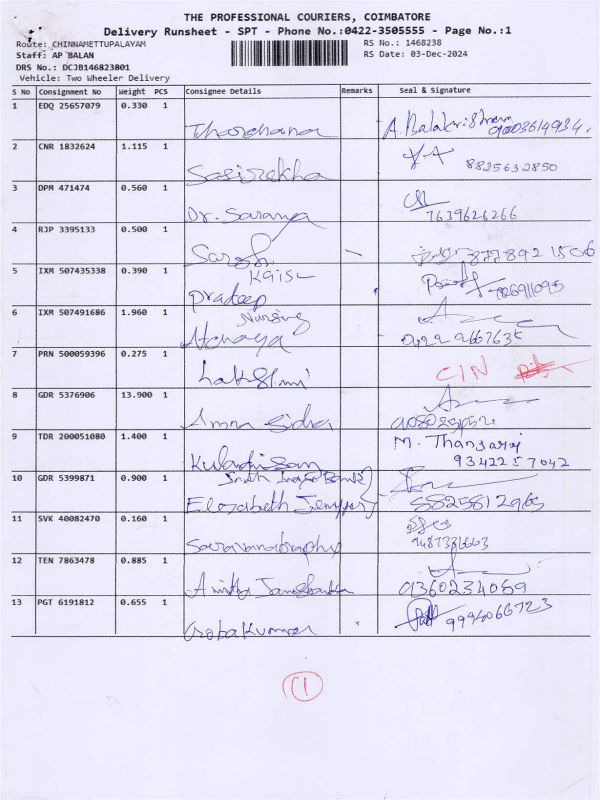 THE PROFESSIONAL COURIERS, COIMBATORE
Delivery Runsheet - SPT - Phone No.:0422-3505555 - Page No.:1
Route: CHINNAMETTUPALAYAM
RS No.: 1468238
Staff: AP BALAN
RS Date: 03-Dec-2024
DRS No.: DCJB146823801
Vehicle: Two Wheeler Delivery
S No Consignment No Weight PCS Consignee Details Remarks Seal & Signature
1 EDQ 25657079 0.330 1
Tharchana
2 CNR 1832624 1.115 1
Sasirekha 8825632850
3 DPM 471474 0.560 1
Dr. Saranya 7639626266
4 RJP 3395133 0.500 1
5 IXM 507435338 0.390 1
pradeep
6 IXM 507491686 1.960 1
Nursing
7 PRN 500059396 0.275 1
Lakshmi CIN
8 GDR 5376906 13.900 1
9 TDR 200051080 1.400 1
M. Thangaraj
9342257042
10 GDR 5399871 0.900 1
Elezabeth
11 SVK 40082470 0.160 1
12 TEN 7863478 0.885 1
9360234059
13 PGT 6191812 0.655 1
Gobakumar 9994066723
1